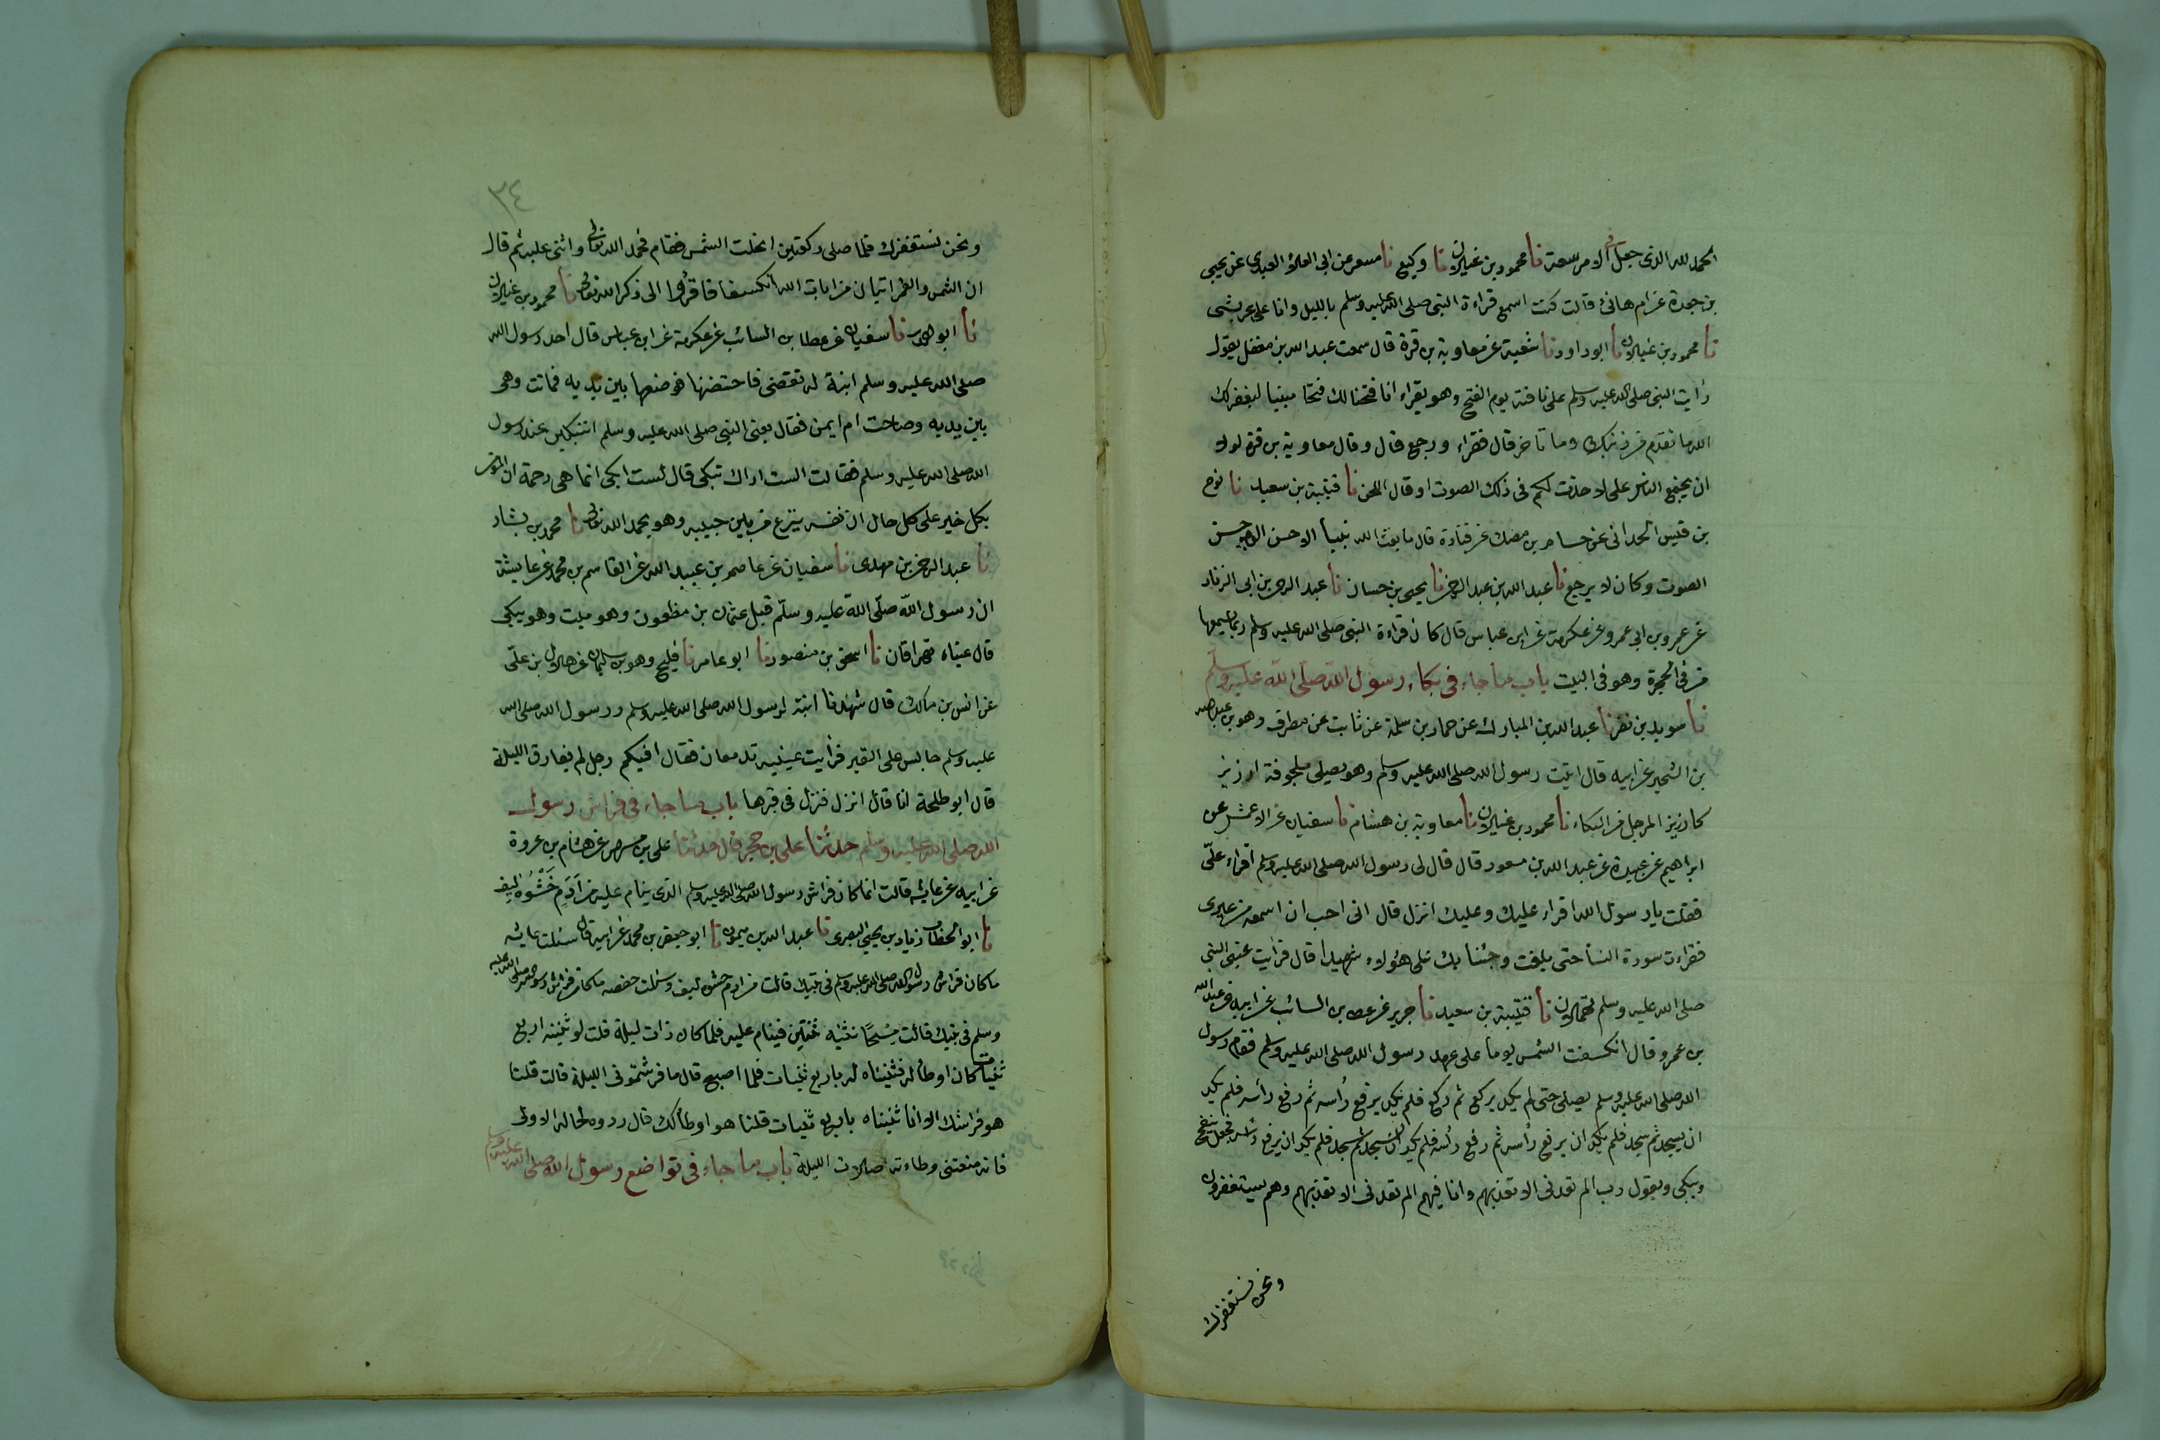 الحمد لله الذى جعل فى الامر سعة نا محمود بن غيلان نا وكيع نا مسعر عن ابى العلاء العبدى عن يحيى
بن جعدة عن ام هانئ قالت كنت اسمع قراءة النبى صلى الله عليه وسلم بالليل وانا على عريشى
نا محمود بن غيلان نا ابو داود نا شعبة عن معاوية بن قرة قال سمعت عبد الله بن مغفل يقول
رأيت النبى صلى الله عليه وسلم على ناقته يوم الفتح وهو يقراء انا فتحنا لك فتحا مبينا ليغفر لك
الله ما تقدم من ذنبك وما تاخر قال فقراء ورجع قال وقال معاوية بن قرة لولا
ان يجتمع الناس على لاخذت لكم فى ذلك الصوت او قال اللحن نا قتيبة بن سعيد نا نوح
بن قيس الحدانى عن حسام بن مصك عن قتادة قال ما بعث الله نبيا الا حسن الوجه حسن
الصوت وكان لا يرجع نا عبد الله بن عبد الرحمن نا يحيى بن حسان نا عبد الرحمن بن ابى الزناد
عن عمرو بن ابى عمرو عن عكرمة عن ابن عباس قال كان قراءة النبى صلى الله عليه وسلم ربما يسمعها
من فى الحجرة وهو فى البيت باب ما جاء فى بكاء رسول الله صلى الله عليه وسلم
نا سويد بن نصر نا عبد الله بن المبارك عن حماد بن سلمة عن ثابت عن مطرف وهو بن عبد الله
بن الشخير عن ابيه قال اتيت رسول الله صلى الله عليه وسلم وهو يصلى ولجوفه ازيز
كازيز المرجل من البكاء نا محمود بن غيلان نا معاوية بن هشام نا سفيان عن الاعمش عن
ابراهيم عن عبيدة عن عبد الله بن مسعود قال قال لى رسول الله صلى الله عليه وسلم اقراء علىّ
فقلت يا رسول الله اقراء عليك وعليك انزل قال انى احب ان اسمعه من غيرى
فقراءت سورة النسا حتى بلغت وجئنا بك على هؤلاء شهيدا قال فرايت عينى النبى
صلى الله عليه وسلم تهملان نا قتيبة بن سعيد نا جرير عن عطا بن السائب عن ابيه عن عبد الله
بن عمرو قال انكسفت الشمس يوما على عهد رسول الله صلى الله عليه وسلم فقام رسول
الله صلى الله عليه وسلم يصلى حتى لم يكد يركع ثم ركع فلم يكد يرفع رأسه ثم رفع رأسه فلم يكد
ان يسجد ثم سجد فلم يكد ان يرفع رأسه ثم رفع رأسه فلم يكد ان يسجد ثم سجد فلم يكد ان يرفع رأسه فجعل ينفخ
ويبكى ويقول رب الم تعدنى الا تعذبهم وانا فيهم الم تعدنى الا تعذبهم وهم يستغفرون
ونحن نستغفرك
٣٤
ونحن نستغفرك فلما صلى ركعتين انجلت الشمس فقام فحمد الله تعالى واثنى عليه ثم قال
ان الشمس والقمر ايتان من ايات الله انكسفا فافزعوا الى ذكر الله تعالى نا محمود بن غيلان
نا ابو احمد نا سفيان عن عطا بن السائب عن عكرمة عن ابن عباس قال اخذ رسول الله
صلى الله عليه وسلم ابنة له تقضى فاحتضنها فوضعها بين يديه فماتت وهى
بين يديه وصاحت ام ايمن فقال يعنى النبى صلى الله عليه وسلم اتبكين عند رسول
الله صلى الله عليه وسلم فقالت الست اراك تبكى قال لست ابكى انما هى رحمة ان المؤمن
بكل خير على كل حال ان نفسه ينزع من بين جبيبه وهو يحمد الله تعالى نا محمد بن بشار
نا عبد الرحمن بن مهدى نا سفيان عن عاصم بن عبيد الله عن القاسم بن محمد عن عايشة
ان رسول الله صلّى اللهّ عليه وسلّم قبل عثمان بن مظعون وهو ميت وهو يبكى
قال عيناه تهراقان نا اسحق بن منصور نا ابو عامر نا فليح وهو بن سليمان عن هلال بن علىّ
عن انس بن مالك قال شهدنا ابنة لرسول الله صلى الله عليه وسلم ورسول الله صلى الله
عليه وسلم جالس على القبر فرأيت عينيه تدمعان فقال افيكم رجل لم يقارف الليلة
قال ابو طلحة انا قال انزل فنزل فى قبرها باب ما جاء فى فراش رسول
الله صلى الله عليه وسلم حدثنا على بن حجر قال حدثنا على بن مسهر عن هشام بن عروة
عن ابيه عن عايشه قالت انما كان فراش رسول الله صلى الله عليه وسلم الذى ينام عليه من اَدَم حَشْوُه ليف
نا ابو الخطاب زياد بن يحيى البصرى نا عبد الله بن ميمون نا ابو جعفر بن محمد عن ابيه قال سئلت عايشه
ما كان فراش رسول الله صلى الله عليه وسلم فى بيتك قالت من ادم حشوه ليف وسئلت حفصه ما كان فراش رسول الله صلى الله عليه
وسلم فى بيتك قالت مِسْحًا نثنيه ثنتين فينام عليه فلما كان ذات ليلة قلت لو ثنيته اربع
ثنيات كان اوطأ له فثنيناه له باربع ثنيات فلما اصبح قال ما فرشتمونى الليلة قالت قلنا
هو فراشك الا انا ثنيناه باربع ثنيات قلنا هو اوطأ لك قال ردوه لحاله الاولى
فانه منعتنى وطاءته صلاتى الليلة باب ما جاء فى تواضع رسول الله صلى الله عليه وسلم